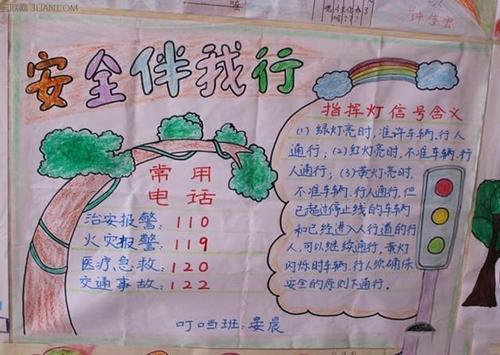 安全伴我行
常用
电话
治安报警: 110
火灾报警: 119
医疗急救: 120
交通事故: 122
叮咚班: 晏晨
指挥灯信号含义
(1) 绿灯亮时,准许车辆、行人
通行;(2)红灯亮时,不准车辆、行
人通行;(3)黄灯亮时,
不准车辆、行人通行,但
已超过停止线的车辆
和已经进入人行道的行
人,可以继续通行,黄灯
闪烁时车辆、行人须确保
安全的原则下通行.